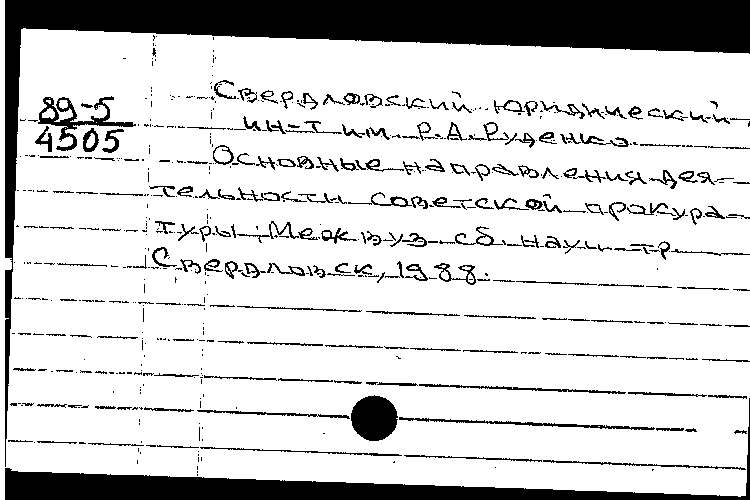 89-5
4505
Свердловский юридический
ин-т им. Р.А.Руденко.
Основные направления дея-
тельности советской прокура-
туры: Межвуз. сб. науч. тр.
Свердловск, 1988.